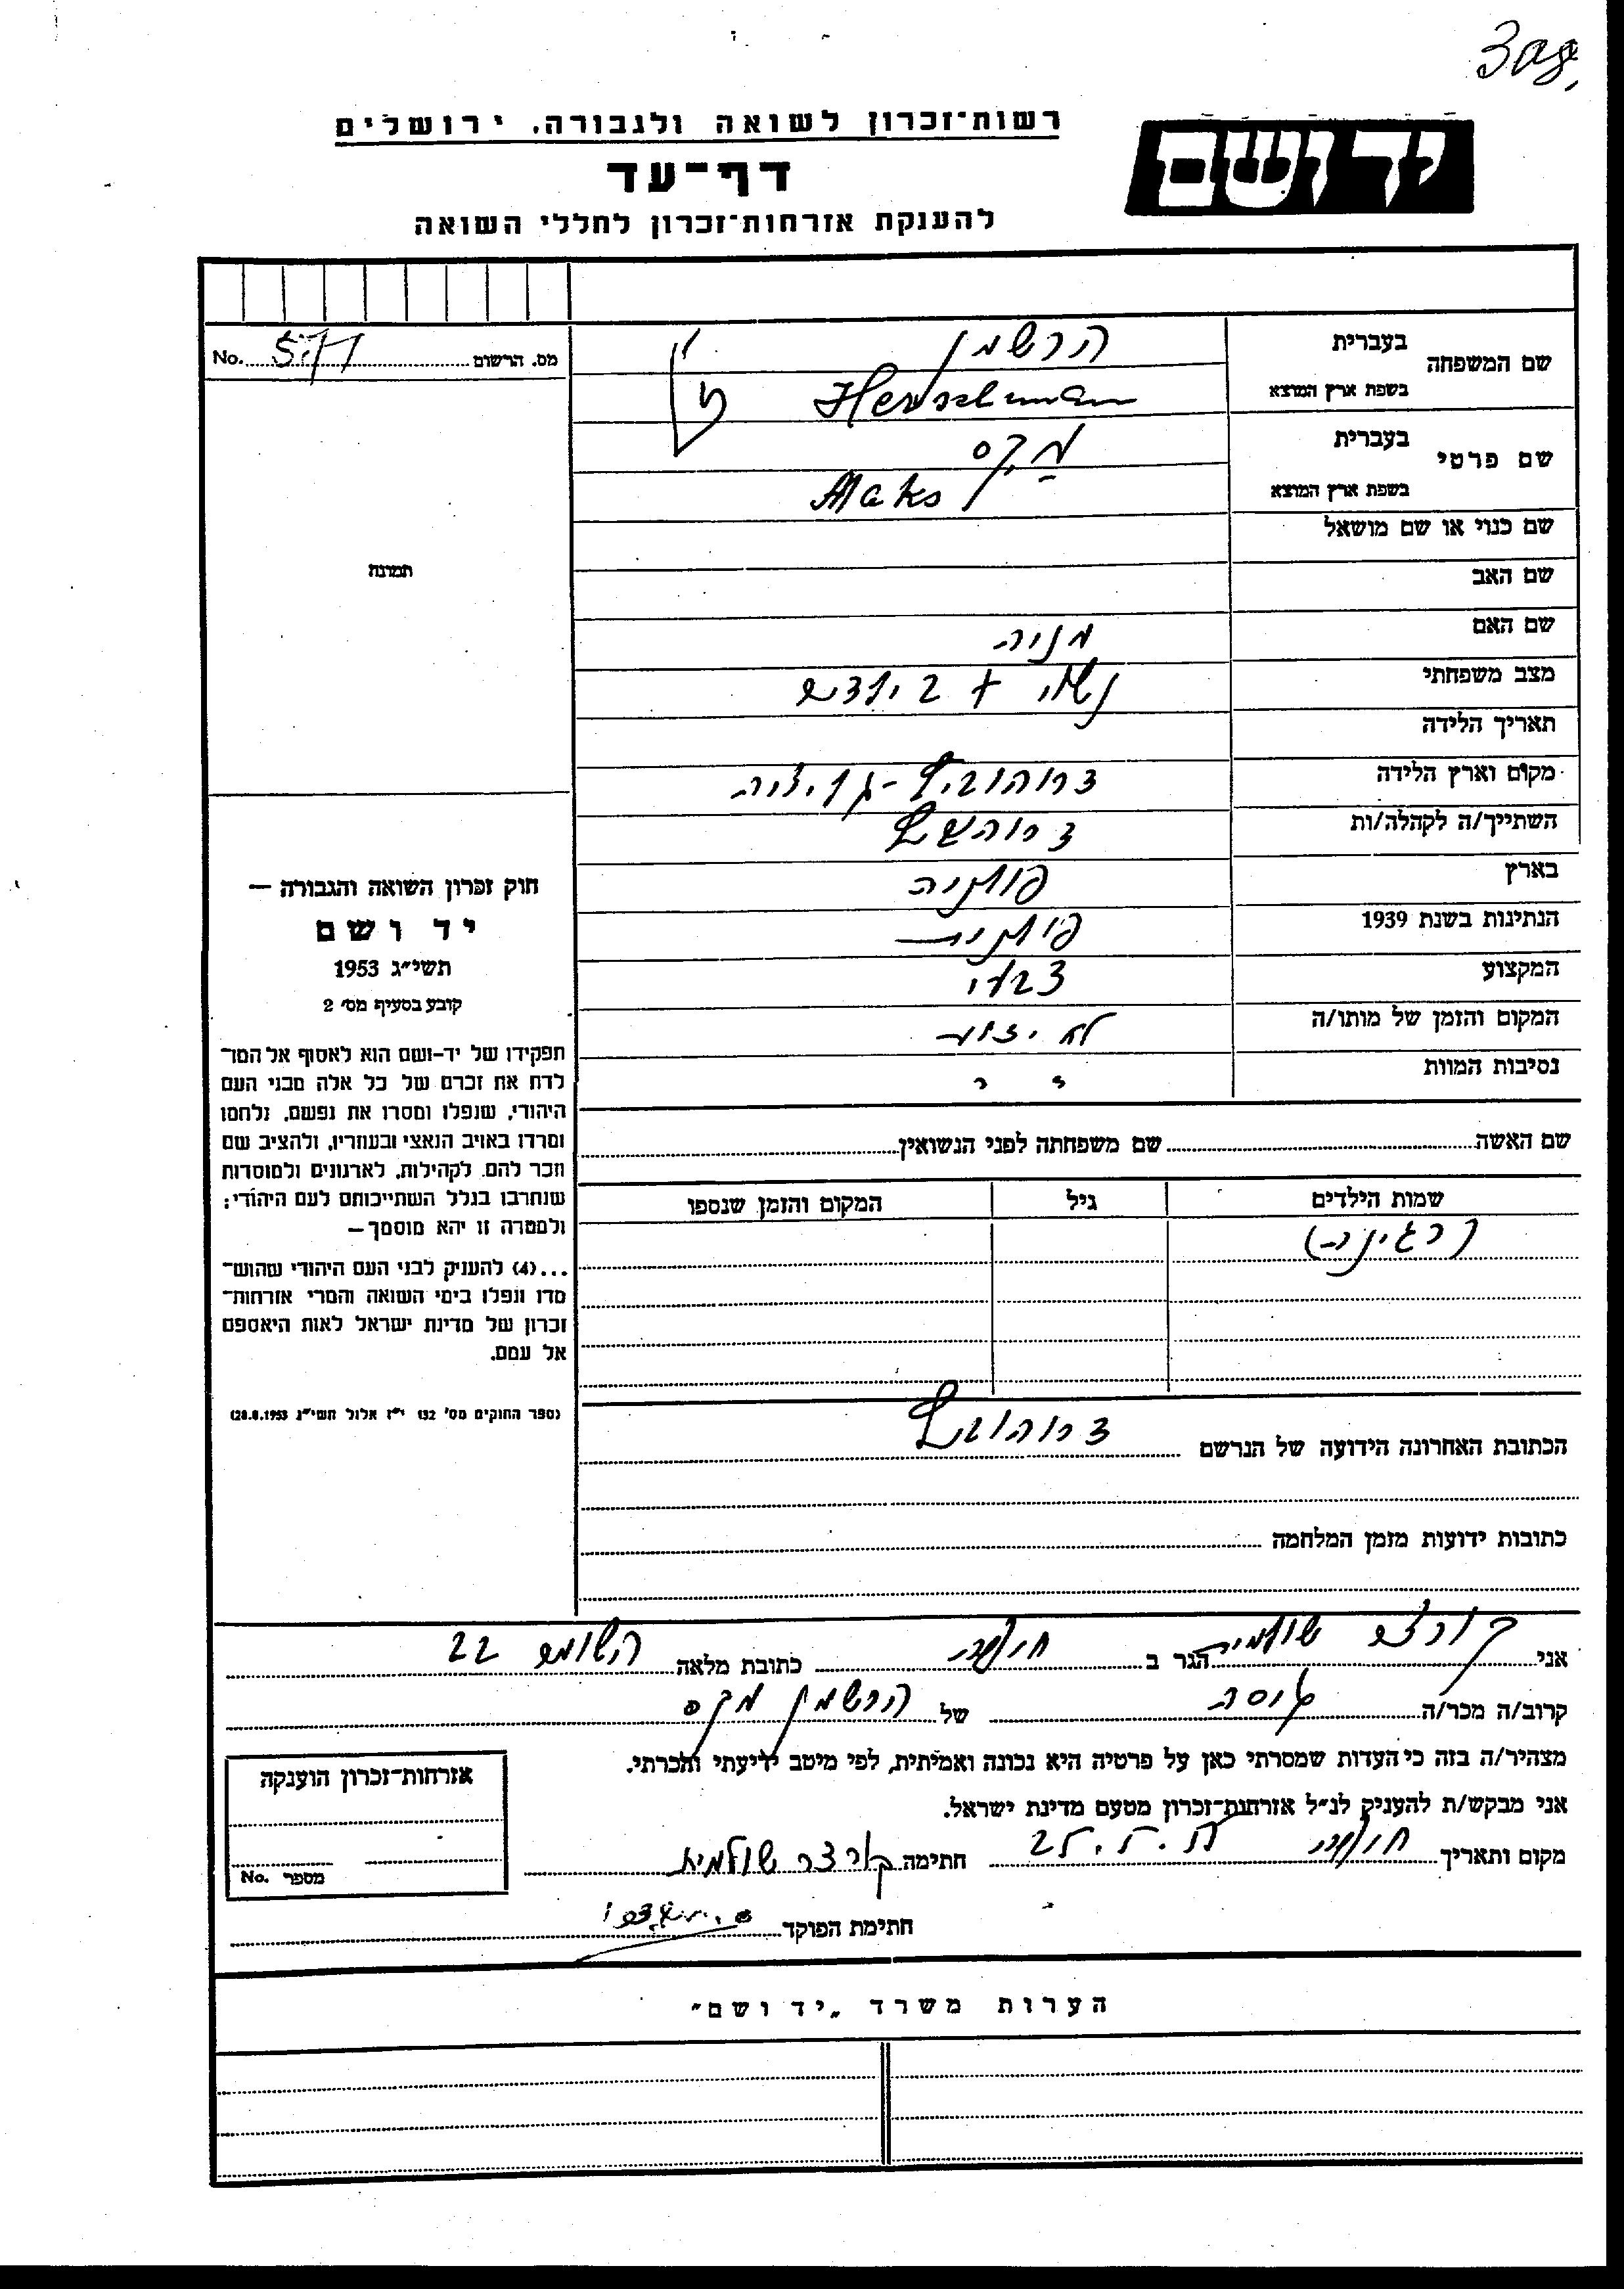 רשות־זכרון לשואה ולגבורה, ירושלים
דף־עד
להענקת אזרחות־זכרון לחללי השואה
יד ושם
מס. הרשום No.
שם המשפחה
בעברית הרשמן
בשפת ארץ המוצא Herschman
שם פרטי
בעברית מקס
בשפת ארץ המוצא Maks
שם כנוי או שם מושאל
שם האב
שם האם מניה
מצב משפחתי נשוי + 2 ילדים
תאריך הלידה
מקום וארץ הלידה דרוהוביץ - גליציה
השתייך/ה לקהלה/ות דרוהוביץ
בארץ פולניה
הנתינות בשנת 1939 פולנית
המקצוע
המקום והזמן של מותו/ה לא ידוע
נסיבות המוות
תמונה
חוק זכרון השואה והגבורה —
יד ושם
תשי״ג 1953
קובע בסעיף מס׳ 2
תפקידו של יד־ושם הוא לאסוף אל המו־
לדת את זכרם של כל אלה מבני העם
היהודי, שנפלו ומסרו את נפשם, נלחמו
ומרדו באויב הנאצי ובעוזריו, ולהציב שם
וזכר להם, לקהילות, לארגונים ולמוסדות
שנחרבו בגלל השתייכותם לעם היהודי;
ולמטרה זו יהא מוסמך —
...(4) להעניק לבני העם היהודי שהוש־
מדו ונפלו בימי השואה והמרי אזרחות־
זכרון של מדינת ישראל לאות היאספם
אל עמם.
(ספר החוקים מס׳ 132 י״ז אלול תשי״ג 28.8.1953)
שם האשה שם משפחתה לפני הנשואין
שמות הילדים גיל המקום והזמן שנספו
(רגינה)
הכתובת האחרונה הידועה של הנרשם דרוהוביץ
כתובות ידועות מזמן המלחמה
אני קורצר שולמית הגר ב חולון כתובת מלאה השומר 22
קרוב/ה מכר/ה גיסה של הרשמן מקס
מצהיר/ה בזה כי העדות שמסרתי כאן על פרטיה היא נכונה ואמיתית, לפי מיטב ידיעתי והכרתי.
אני מבקש/ת להעניק לנ״ל אזרחות־זכרון מטעם מדינת ישראל.
מקום ותאריך חולון חתימה קורצר שולמית
חתימת הפוקד
אזרחות־זכרון הוענקה
מספר No.
הערות משרד „יד ושם״